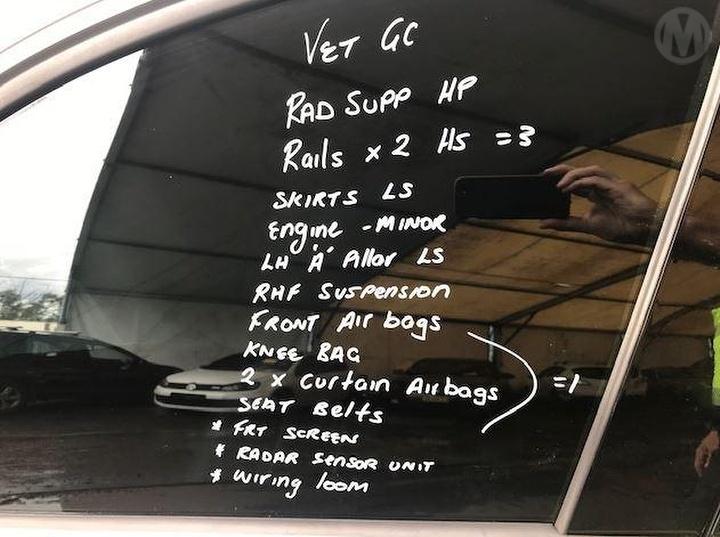 VET GC
RAD SUPP HP
Rails x 2 HS =3
SKIRTS LS
Engine - MINOR
LH "A" Pillar LS
RHF Suspension
FRONT Air bags
KNEE BAG
2 x Curtain Airbags =1
SEAT Belts
* FRT SCREEN
* RADAR Sensor UNIT
* wiring loom
M